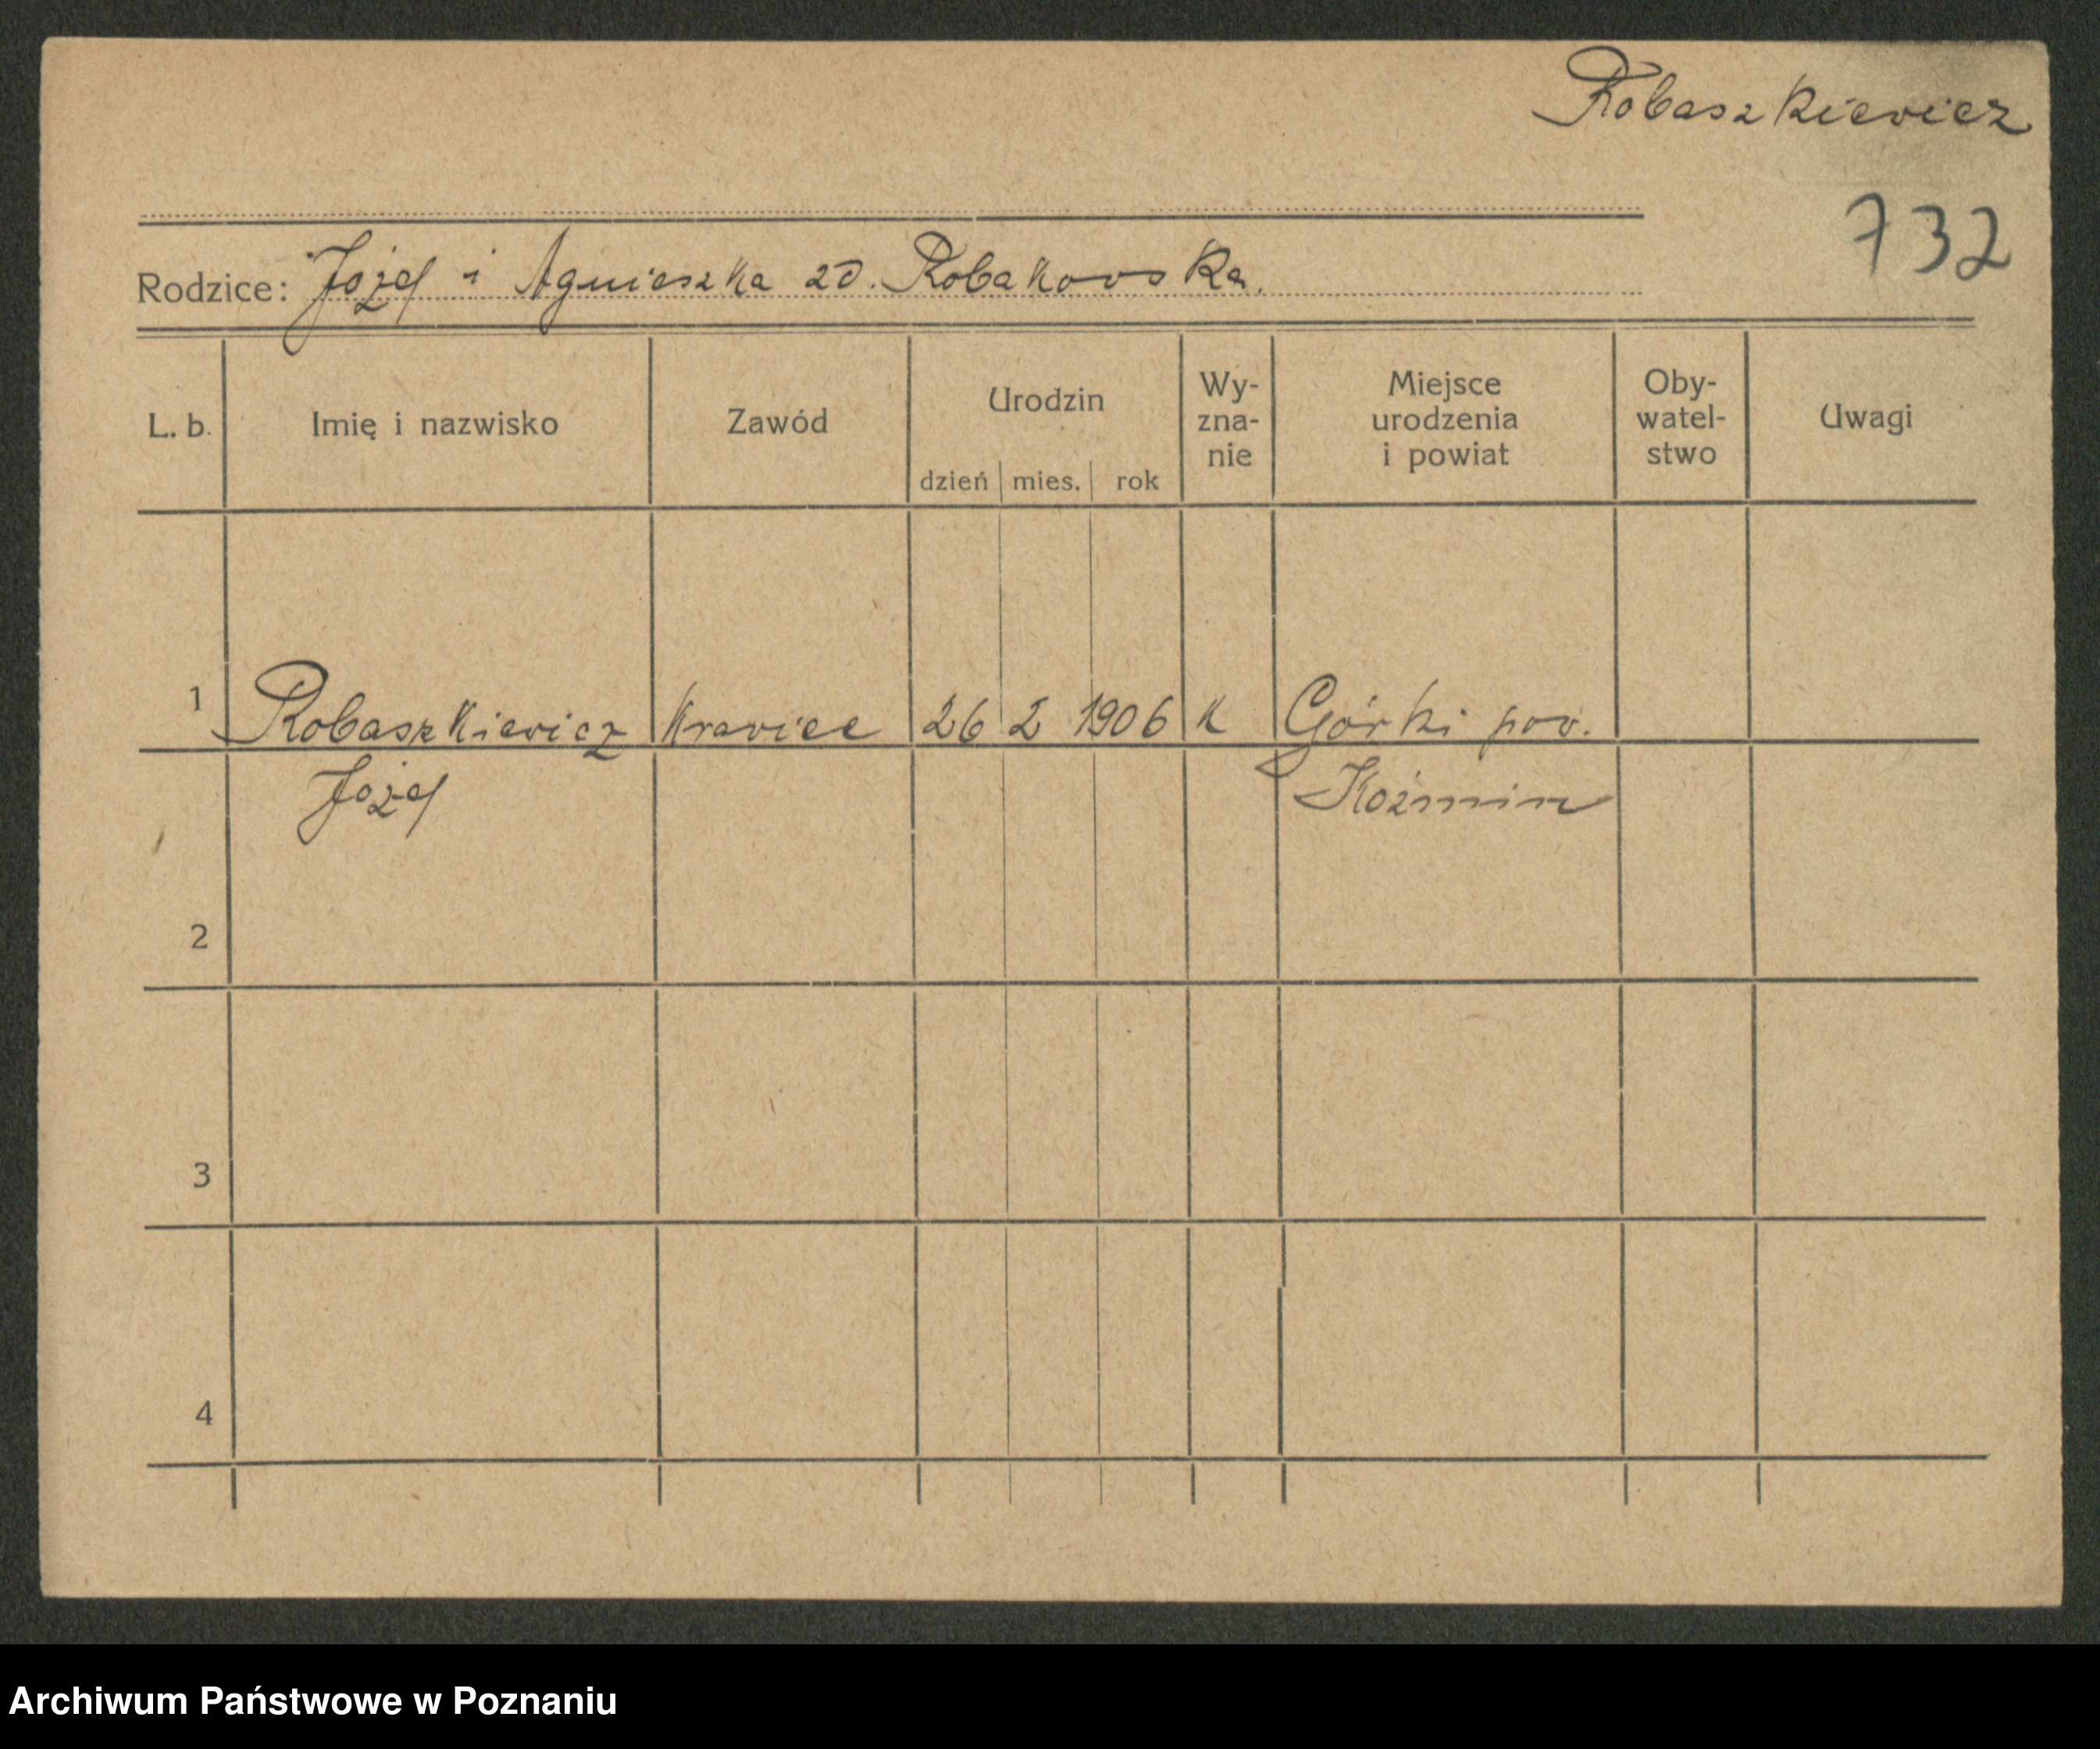 Robaszkiewicz
732
Rodzice: Józef i Agnieszka zd. Robakowska.
L. b. Imię i nazwisko Zawód Urodzin dzień mies. rok Wy-znanie Miejsce urodzenia i powiat Oby-watel-stwo Uwagi
1 Robaszkiewicz krawiec 26 2 1906 k Górki pow.
Józef Koźmin
2
3
4
Archiwum Państwowe w Poznaniu